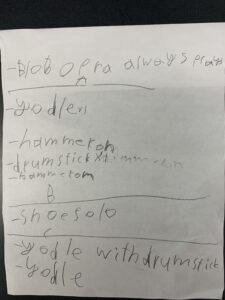 -Blob opera always prais
A
-yodlen
-hammeron
-drumstick
-hammeron
B
-shoesolo
C
-yodle with drumstick
-yodle